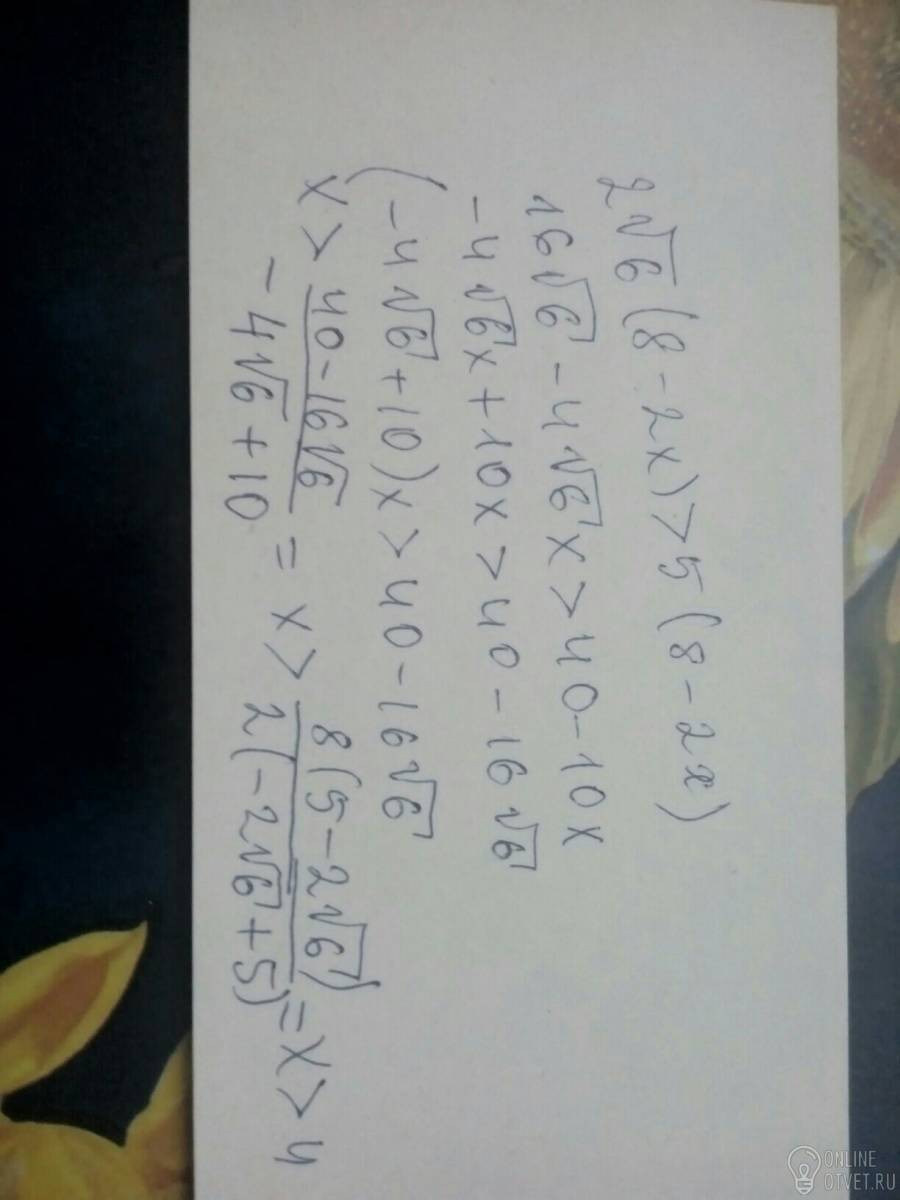 2√6(8-2x)>5(8-2x)
16√6-4√6x>40-10x
-4√6x+10x>40-16√6
(-4√6+10)x>40-16√6
x>(40-16√6)/(-4√6+10) = x>(8(5-2√6))/(2(-2√6+5)) = x>4
ONLINE
OTVET.RU